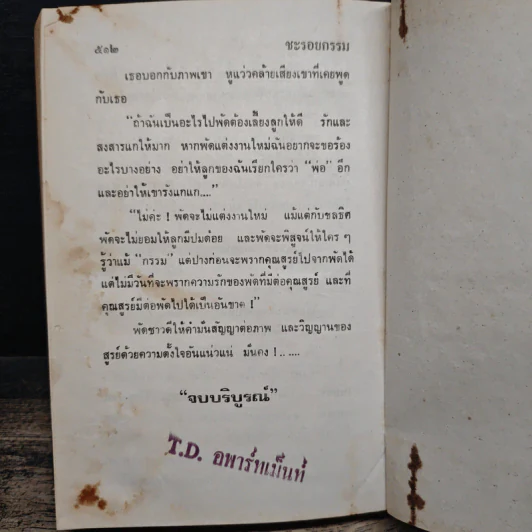 ๕๑๒
ชะรอยกรรม
เธอบอกกับภาพเขา หูแว่วคล้ายเสียงเขาที่เคยพูด
กับเธอ
“ถ้าฉันเป็นอะไรไปพัดต้องเลี้ยงลูกให้ดี รักและ
สงสารแกให้มาก หากพัดแต่งงานใหม่ฉันอยากจะขอร้อง
อะไรบางอย่าง อย่าให้ลูกของฉันเรียกใครว่า “พ่อ” อีก
และอย่าให้เขารังแกแก....”
“ไม่ค่ะ ! พัดจะไม่แต่งงานใหม่ แม้แต่กับชลธิศ
พัดจะไม่ยอมให้ลูกมีปมด้อย และพัดจะพิสูจน์ให้ใคร ๆ
รู้ว่าแม้ “กรรม” แต่ปางก่อนจะพรากคุณสูรย์ไปจากพัดได้
แต่ไม่มีวันที่จะพรากความรักของพัดที่มีต่อคุณสูรย์ และที่
คุณสูรย์มีต่อพัดไปได้เป็นอันขาด !”
พัดชาวดีให้คำมั่นสัญญาต่อภาพ และวิญญาณของ
สูรย์ด้วยความตั้งใจอันแน่วแน่ มั่นคง !.. ....
“จบบริบูรณ์”
T.D. อพาร์ทเม็นท์